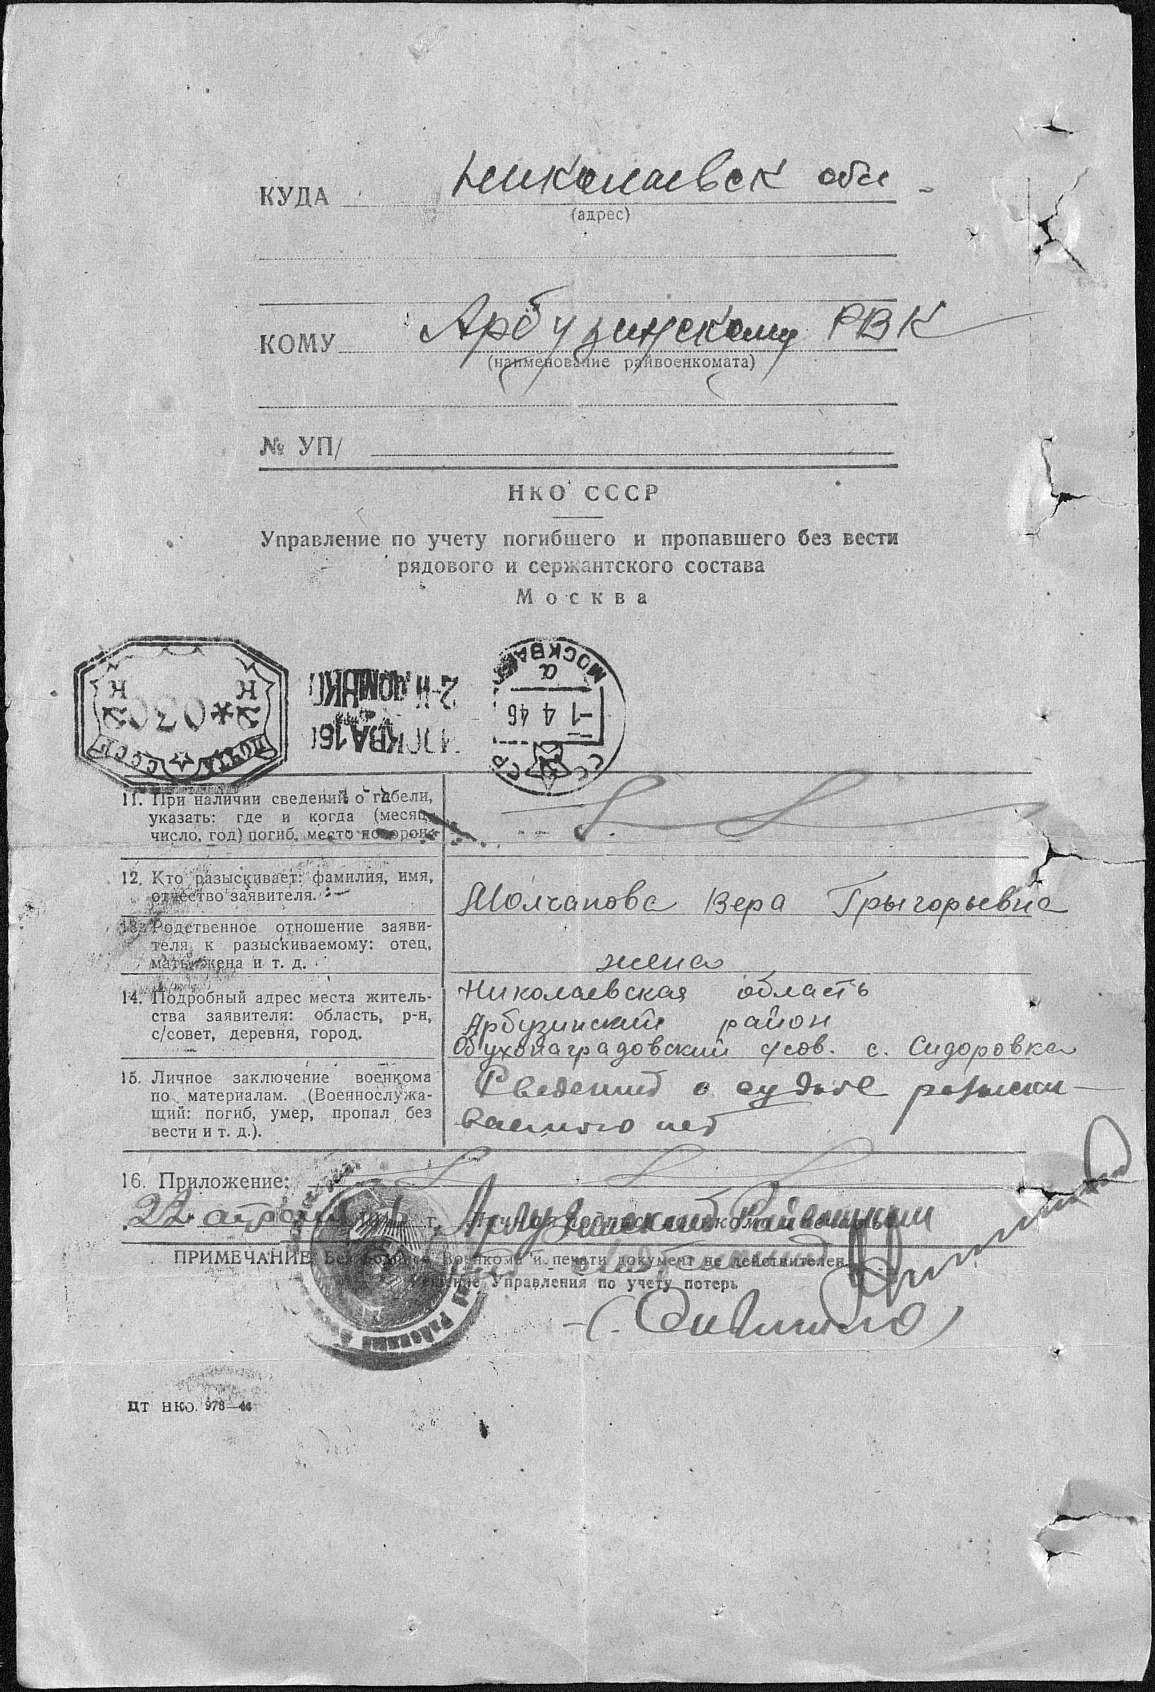 КУДА Николаевск обл
(адрес)
КОМУ Арбузинскому РВК
(наименование райвоенкомата)
№ УП/
НКО СССР
Управление по учету погибшего и пропавшего без вести
рядового и сержантского состава
Москва
ПОЧТА СССР
030
МОСКВА
-1 4 46
11. При наличии сведений о гибели,
указать: где и когда (месяц,
число, год) погиб, место похорон.
12. Кто разыскивает: фамилия, имя,
отчество заявителя.
Молчанова Вера Грыгорьевна
13. Родственное отношение заяви-
теля к разыскиваемому: отец,
мать, жена и т. д.
жена
14. Подробный адрес места житель-
ства заявителя: область, р-н,
с/совет, деревня, город.
Николаевская область
Арбузинский район
с/сов. с. Сидоровка
15. Личное заключение военкома
по материалам. (Военнослужа-
щий: погиб, умер, пропал без
вести и т. д.).
Сведений о судьбе разыски-
ваемого нет
16. Приложение:
22 апреля г. Арбузинский Райвоенком
ПРИМЕЧАНИЕ: Без подписи Военкома и печати документ не действителен
Управления по учету потерь
ЦТ НКО. 978—44